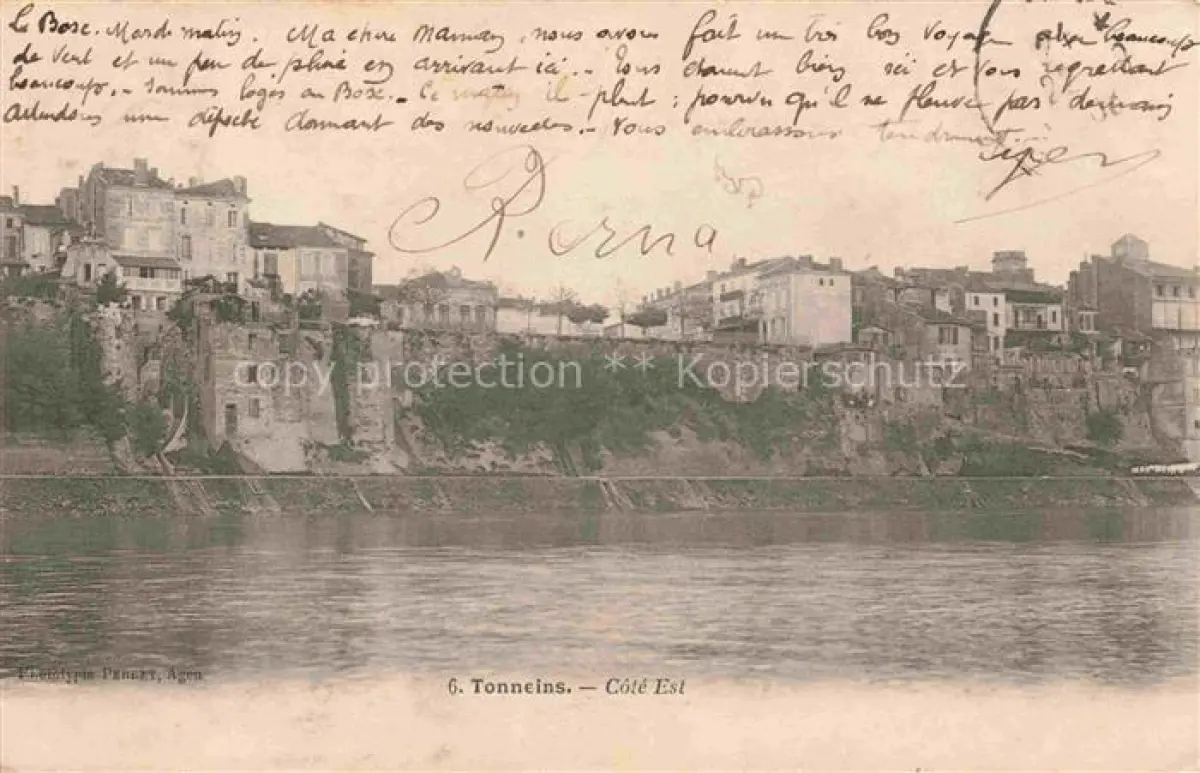 Le Bosc. Mardi matin. Ma chère Maman, nous avons fait un très bon voyage avec beaucoup
de vent et un peu de pluie en arrivant ici. - Tous étaient bien ici et vous regrettant
beaucoup. - Sommes logés au Bosc. - Ce matin il pleut ; pourvu qu'il ne pleuve pas demain
Attendons une dépêche donnant des nouvelles. - Vous embrassons tendrement
copy protection ** Kopierschutz
Phototypie Perret, Agen
6. Tonneins. — Côté Est